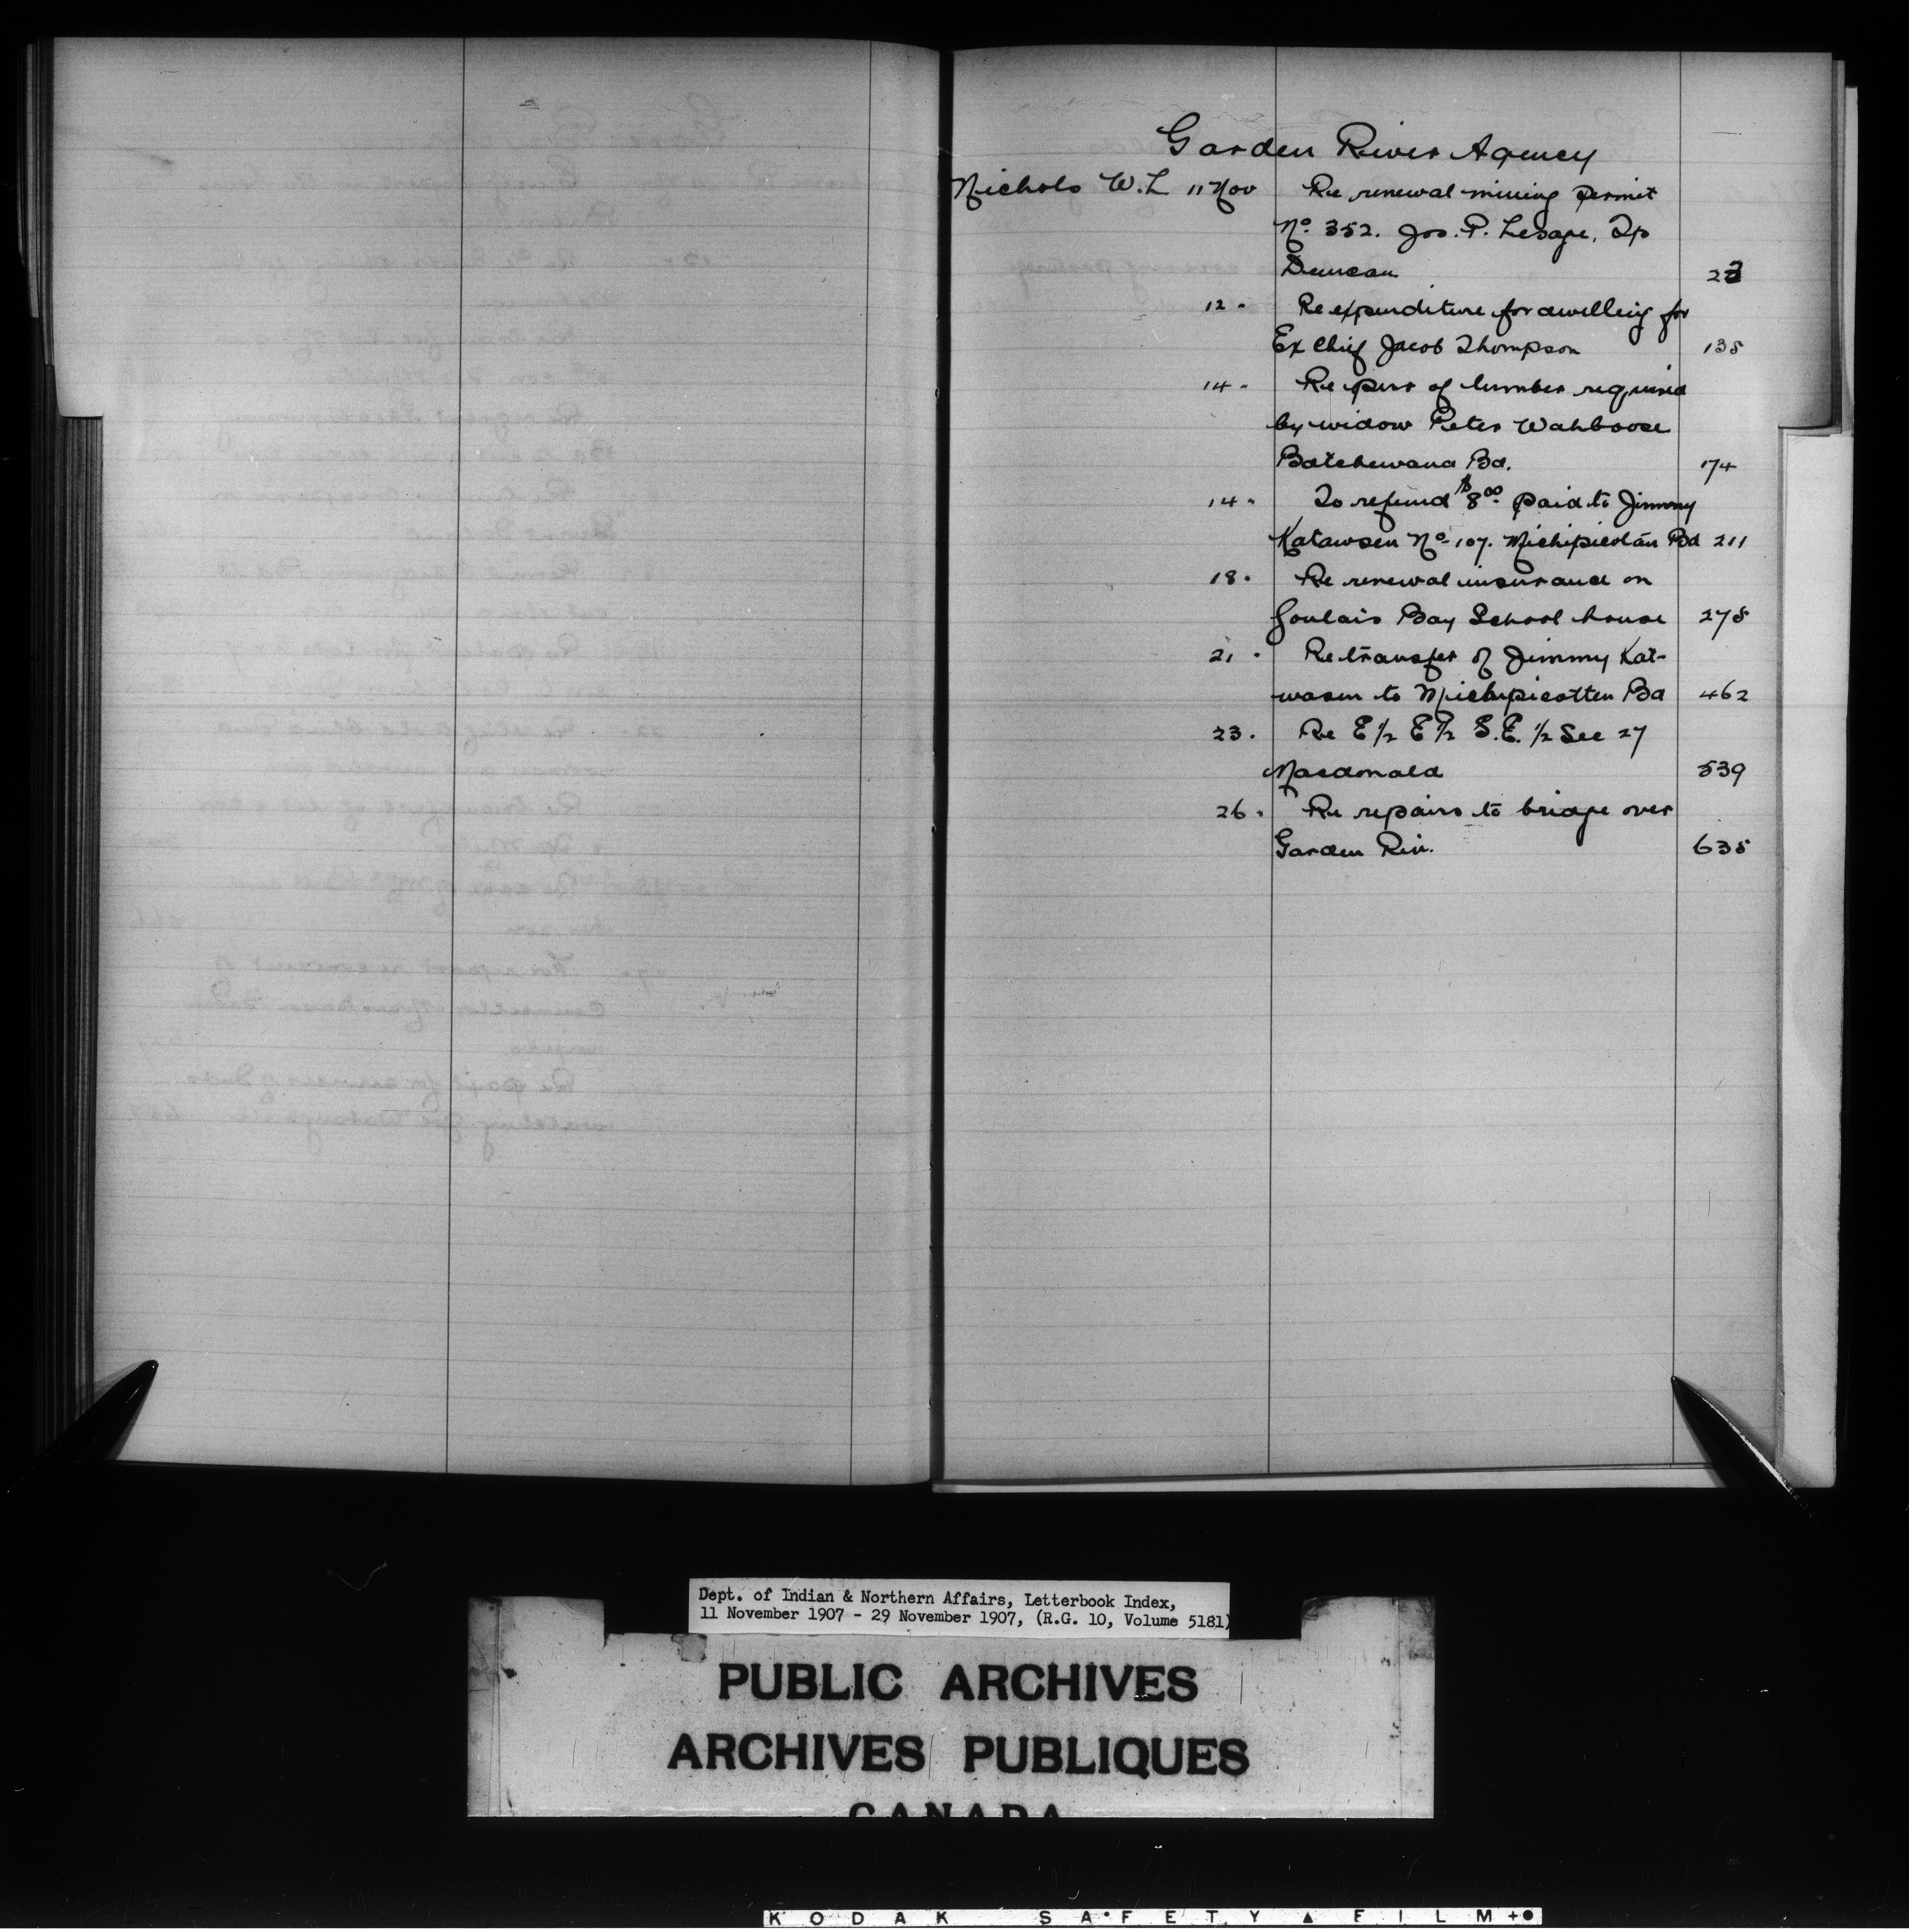 Garden River Agency
Nichols W. L 11 Nov Re renewal mining permit
No. 352. Jos. P. Lesage, Tp
Duncan 23
12 " Re expenditure for dwelling for
Ex Chief Jacob Thompson 135
14 " Re purs of lumber required
by widow Peter Wahboose
Batchewana Bd. 174
14 " To refund $8.00 paid to Jimmy
Katawsen No. 107. Michipicotan Bd 211
18 " Re renewal insurance on
Goulais Bay School house 275
21 " Re transfer of Jimmy Kat-
wasen to Michipicotten Bd 462
23 " Re E 1/2 E 1/2 S.E. 1/2 Sec 27
Macdonald 539
26 " Re repairs to bridge over
Garden Riv. 635
Dept. of Indian & Northern Affairs, Letterbook Index,
11 November 1907 - 29 November 1907, (R.G. 10, Volume 5181)
PUBLIC ARCHIVES
ARCHIVES PUBLIQUES
CANADA
KODAK SAFETY ▲ FILM +●